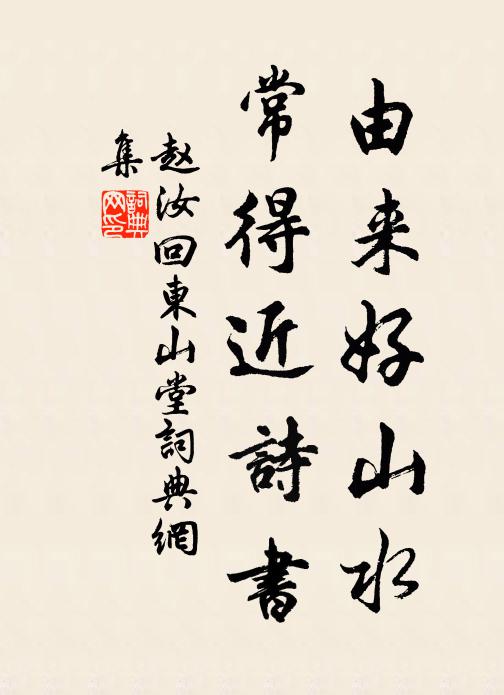 由来好山水
常得近詩書
赵汝回東山堂詞典網
集
詞典网印